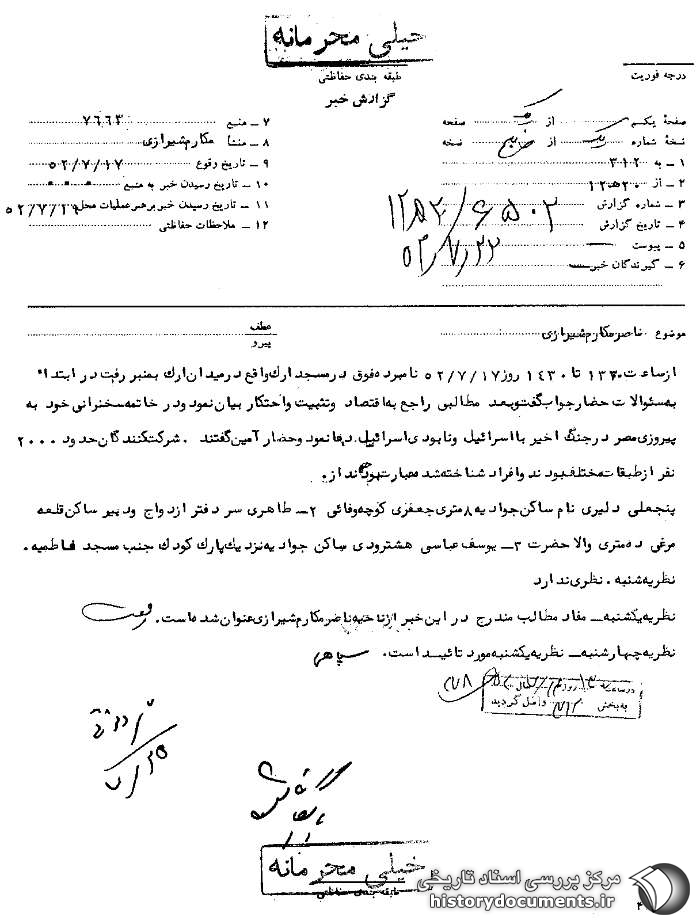 خیلی محرمانه
طبقه بندی حفاظتی
درجه فوریت
گزارش خبر
صفحهٔ یکم از یک صفحه
نسخهٔ شماره یک از نسخه
۱ ـ به ۳۱۲
۲ ـ از ۱۲ه۲۰
۳ ـ شماره گزارش ۶۵۰۲/
۴ ـ تاریخ گزارش ۵۲/۷/۲۲
۵ ـ پیوست
۶ ـ گیرندگان خبر
۷ ـ منبع ۷۶۶۳
۸ ـ منشأ مکارم شیرازی
۹ ـ تاریخ وقوع ۵۲/۷/۱۷
۱۰ ـ تاریخ رسیدن خبر به منبع
۱۱ ـ تاریخ رسیدن خبر برهبر عملیات محل
۱۲ ـ ملاحظات حفاظتی
موضوع ناصر مکارم شیرازی
عطف
پیرو
ازساعت تا ۱۴۳۰ روز ۵۲/۷/۱۷ نامبرده فوق در مسجد ارك واقع در میدان ارك بمنبر رفت در ابتداء
به سئوالات حضار جواب گفت وبعد مطالبی راجع به اقتصاد وتثبیت واحتکار بیان نمود ودر خاتمه سخنرانی خود به
پیروزی مصر در جنگ اخیر با اسرائیل ونابودی اسرائیل دعا نمود وحضار آمین گفتند . شرکت کنندگان حدود ۲۰۰۰
نفر از طبقات مختلف بودند وافراد شناخته شده عبارت بودند از.
پنجعلی دلیری نام ساکن جوادیه ۸متری جعفری کوچه وفائی ۲ـ طاهری سر دفتر ازدواج ودبیر ساکن قلعه
مرغی ده متری والا حضرت ۳ـ یوسف عباسی هشترودی ساکن جوادیه نزدیك پارك كودك جنب مسجد فاطمیه .
نظریه شنبه . نظری ندارد
نظریه یکشنبه ـ مفاد مطالب مندرج در این خبر از ناحیه ناصر مکارم شیرازی عنوان شده است .
نظریه چهارشنبه ـ نظریه یکشنبه مورد تائید است . سپاهی
در ساعت ۱۳ روز
به بخش ۳۱۲ واصل گردید
۷/۲۵
خیلی محرمانه
طبقه بندی حفاظتی
مرکز بررسی اسناد تاریخی
historydocuments.ir